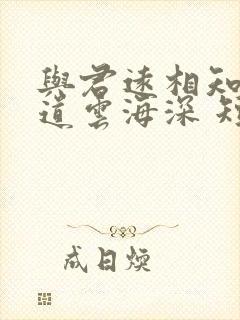 與君遠相知
道雲海深
成日煥